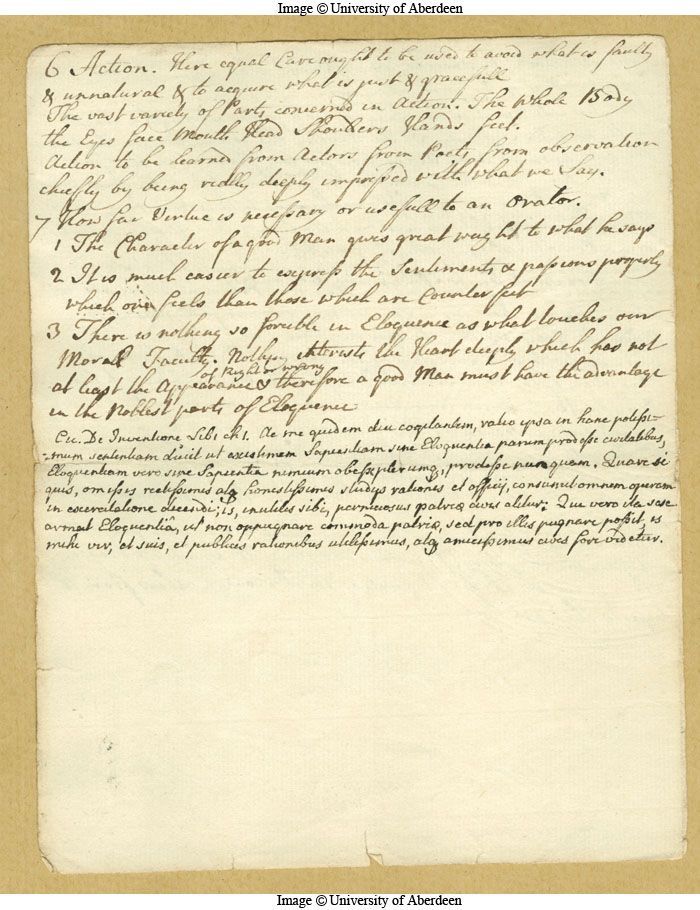 Image © University of Aberdeen
6 Action. Here equal Care ought to be used to avoid what is faulty
& unnatural & to acquire what is just & gracefull
The vast variety of Parts concerned in Action. The Whole Body
the Eyes face Mouth Head Shoulders Hands feet.
Action to be learned from Actors from Poets from observation
chiefly by being really deeply impressed with what we Say.
7 How far Virtue is necessary or usefull to an Orator.
1 The Character of a good Man gives great weight to what he says
2 It is much easier to express the Sentiments & passions properly
which one feels than those which are Counterfeit
3 There is nothing so forcible in Eloquence as what touches our
Moral Faculty. Nothing interests the Heart deeply which has not
of Right or wrong
at least the Appearance & therefore a good Man must have the advantage
in the Noblest parts of Eloquence
Cic. De Inventione Lib 1 ch 1. Ac me quidem diu cogitantem, ratio ipsa in hanc potissi-
-mum sententiam ducit ut existimem Sapientiam sine Eloquentia parum prodesse civitatibus,
Eloquentiam vero sine Sapientia nimium obesse plerumq, prodesse nunquam. Quare si
quis, omissis rectissimis atq honestissimis studijs rationis et officij, consumit omnem operam
in exercitatione dicendi; is, inutilis sibi, perniciosus patriæ civis alitur: Qui vero ita sese
armat Eloquentiâ, ut non oppugnare commoda patriæ, sed pro illis pugnare possit, is
mihi vir, et suis, et publicis rationibus utilissimus, atq amicissimus civis fore videtur.
Image © University of Aberdeen